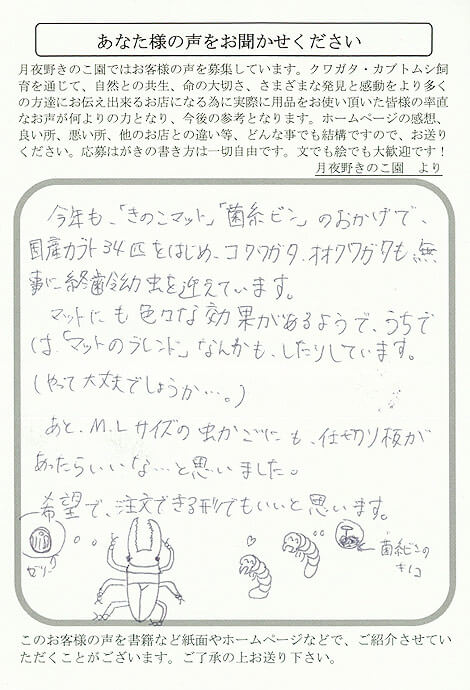 あなた様の声をお聞かせください
月夜野きのこ園ではお客様の声を募集しています。クワガタ・カブトムシ飼
育を通じて、自然との共生、命の大切さ、さまざまな発見と感動をより多く
の方達にお伝え出来るお店になる為に実際に用品をお使い頂いた皆様の率直
なお声が何よりの力となり、今後の参考となります。ホームページの感想、
良い所、悪い所、他のお店との違い等、どんな事でも結構ですので、お送り
ください。応募はがきの書き方は一切自由です。文でも絵でも大歓迎です！
月夜野きのこ園 より
今年も、「きのこマット」「菌糸ビン」のおかげで、
国産カブト34匹をはじめ、コクワガタ、オオクワガタも無
事に終齢幼虫を迎えています。
マットにも色々な効果があるようで、うちで
は、「マットのブレンド」なんかも、したりしています。
(やって大丈夫でしょうか…。)
あと、M.Lサイズの虫かごにも、仕切り板が
あったらいいな…と思いました。
希望で、注文できる形でもいいと思います。
ゼリー
菌糸ビンの
キノコ
このお客様の声を書籍など紙面やホームページなどで、ご紹介させてい
ただくことがございます。ご了承の上お送り下さい。